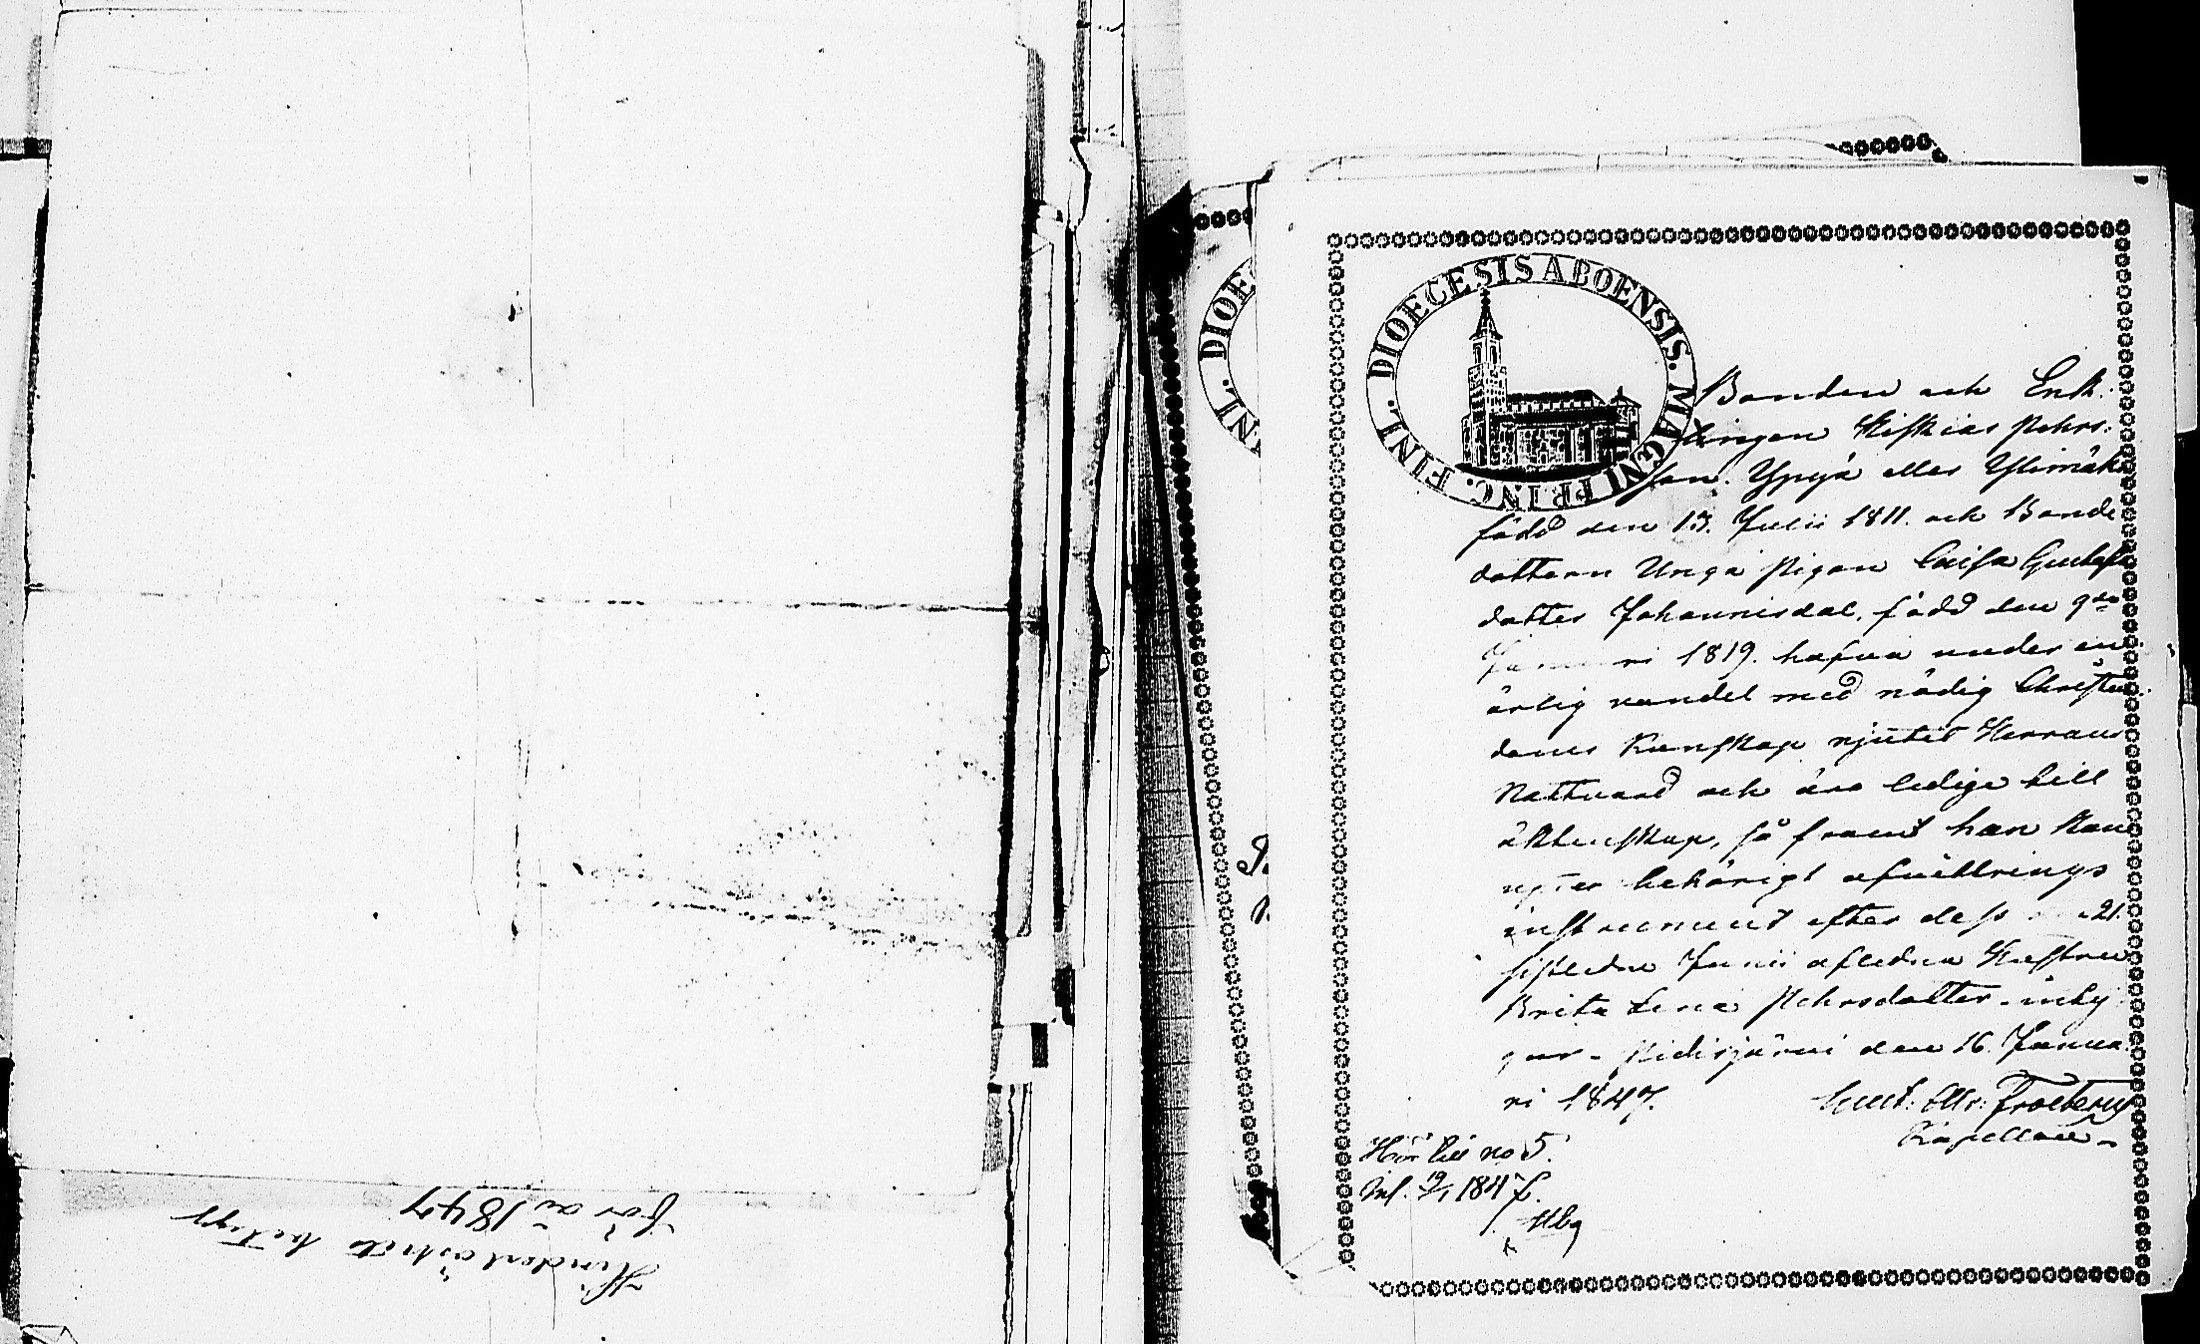 Hinderlöshets betyg
för år 1847
DIOECESIS ABOENSIS. MAGNI PRINC. FINL.
Bonden och Enk:
lingen Hiskias Pehrs:
son. Ypyä eller Ylimäki
född den 13. Julii 1811. och Bonde
dottern Unga Pigan Caisa Gustafs
dotter Johannisdal, född den 9de
Januari 1819. hafva under en
ärlig vandel med nödig Christen
doms Kunskap njutit Herrans
Nattvard och äro ledige till
äktenskap, så framt han kan
uppter behörigt afvittrings
instrument efter dess den 21.
sistledne Junii afledna Hustru
Brita Lena Pehrsdotter. inty
gar. Pidisjärvi den 16. Janua
ri 1847.
Gust: Ottr: Froeberg
Kapellan
Hör till no 5.
Inl. 19/1 1847.